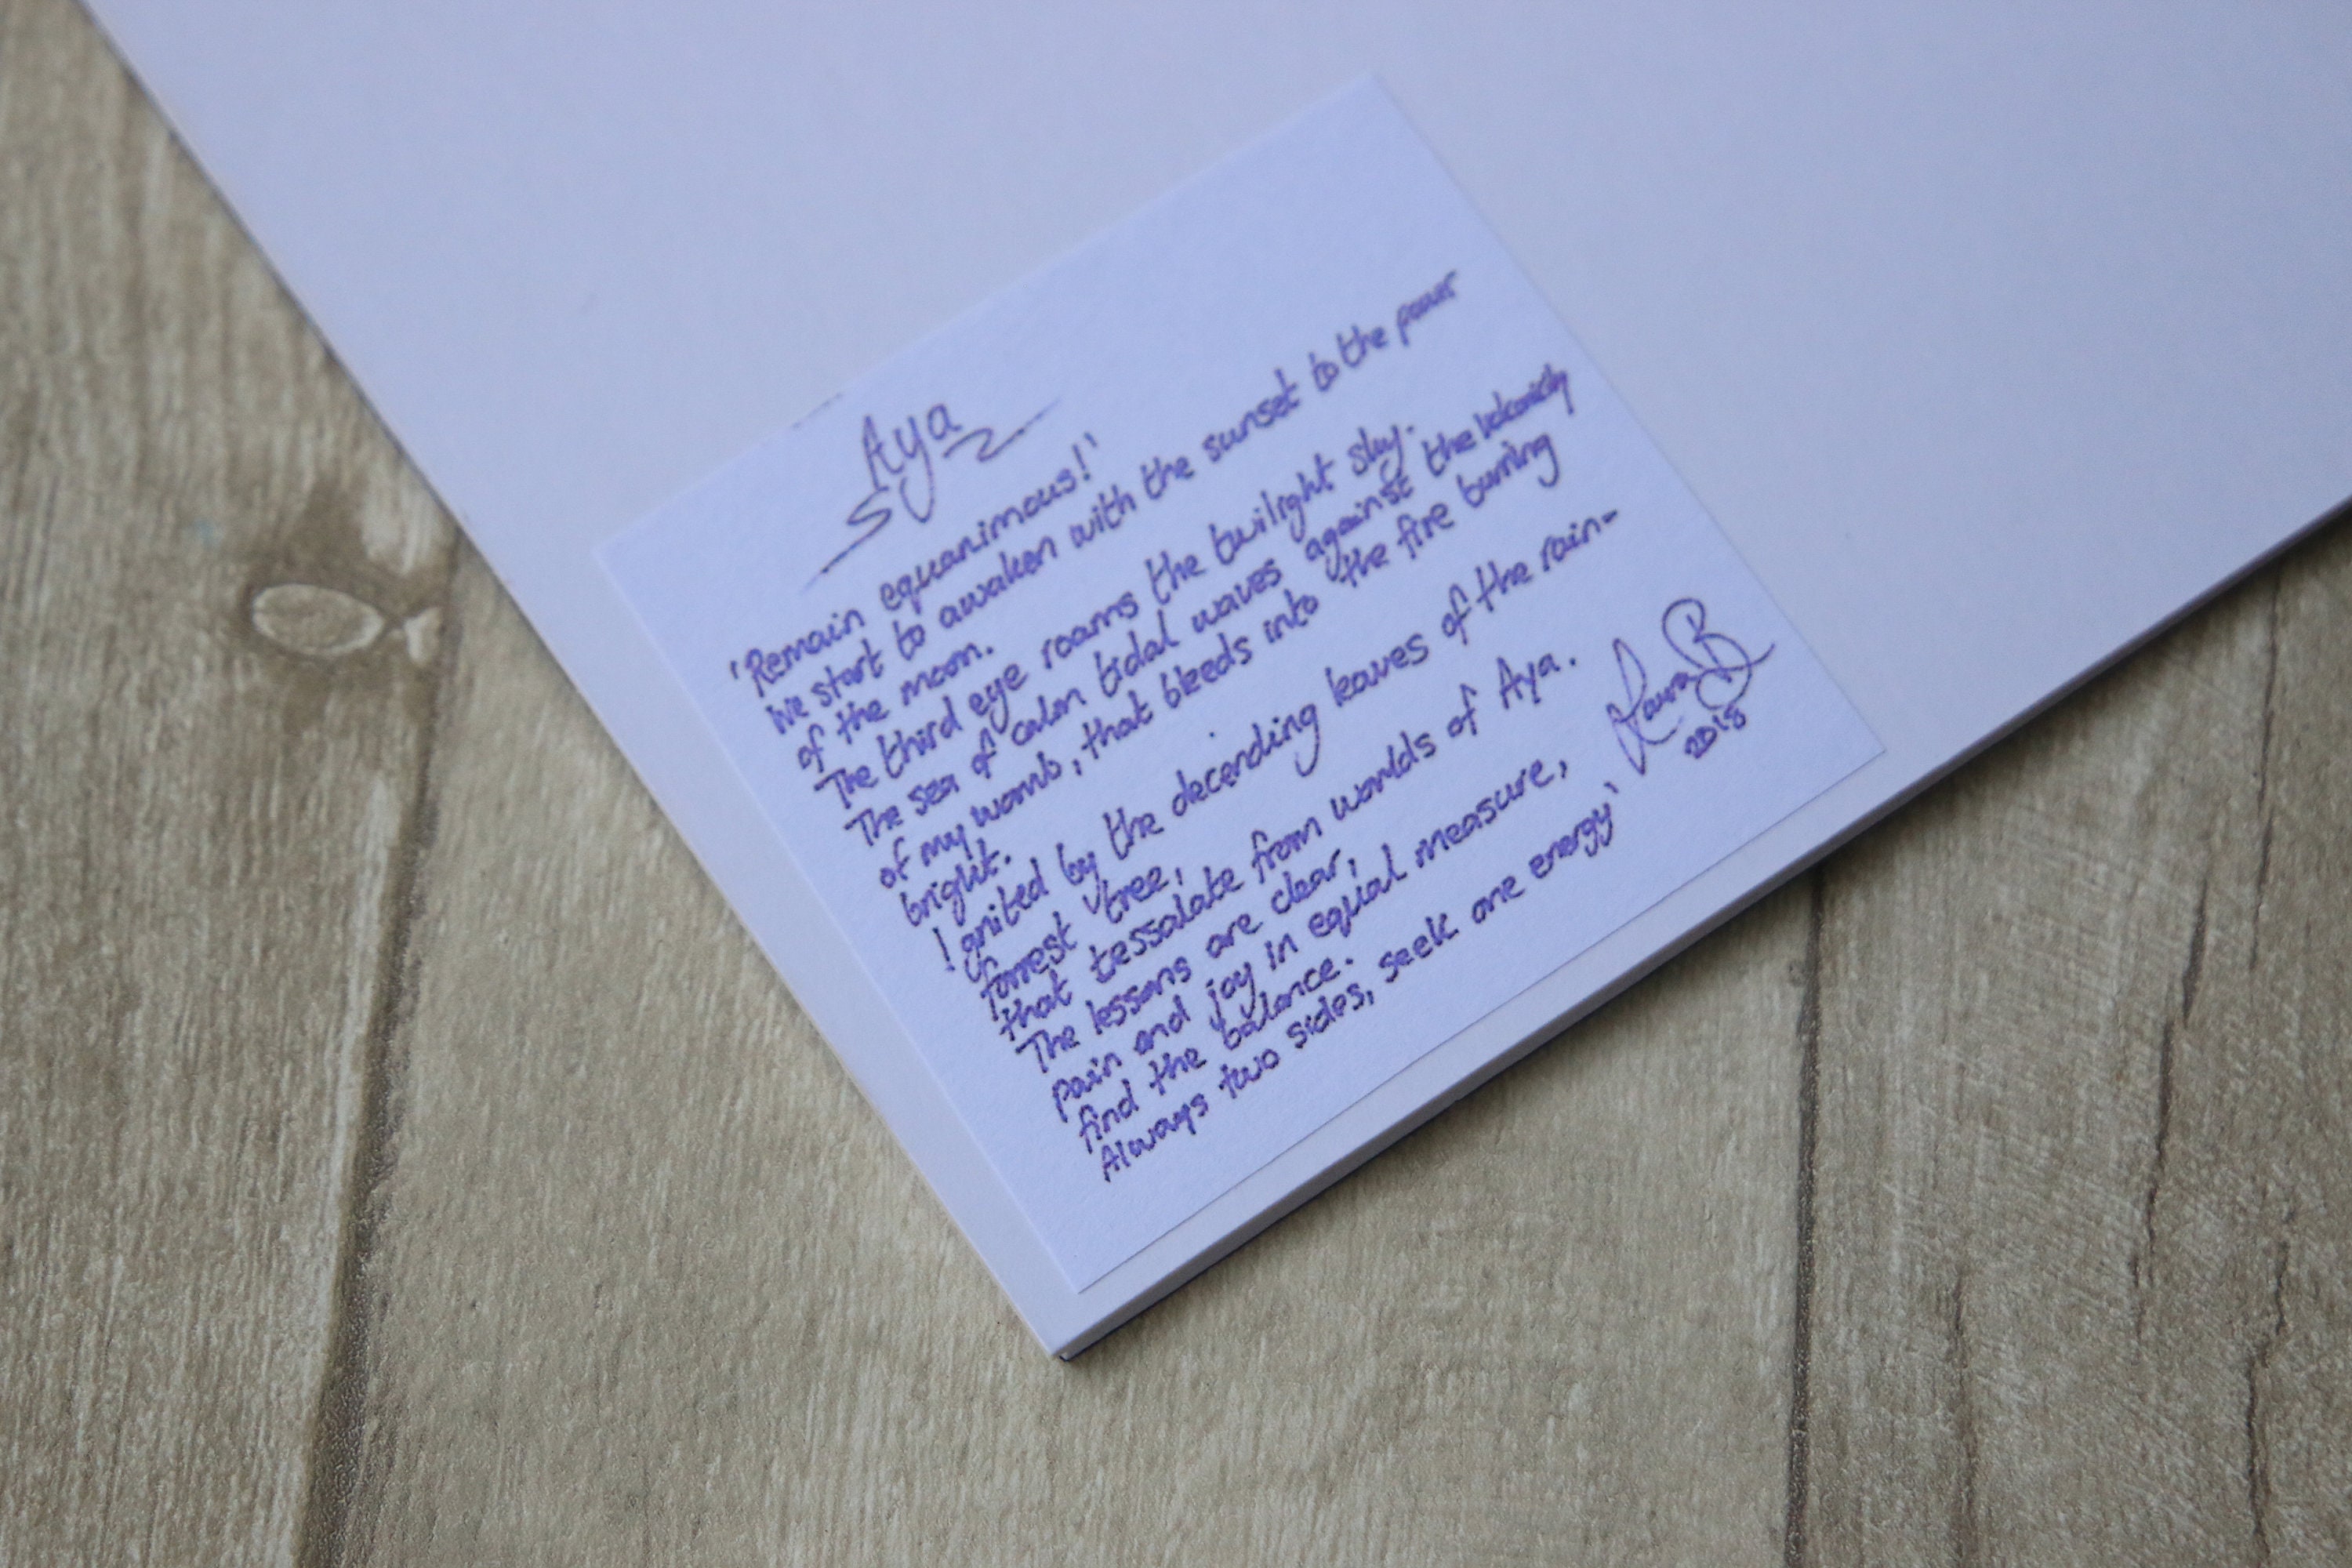 Aya
'Remain equanimous!'
We start to awaken with the sunset to the power
of the moon.
The third eye roams the twilight sky.
The sea of calm tidal waves against the
of my womb, that bleeds into the fire burning
bright.
Ignited by the decending leaves of the rain-
forrest tree,
that tessalate from worlds of Aya.
The lessons are clear,
pain and joy in equal measure,
find the balance.
Always two sides, seek one energy'
Laura B
2018